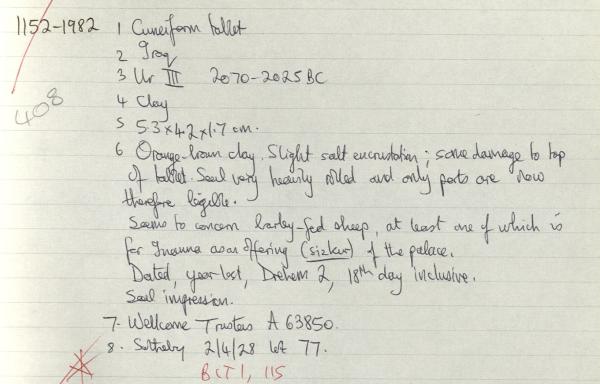 1152-1982 1 Cuneiform tablet
2 Iraq
3 Ur III 2070-2025 BC
4 Clay
408
5 5.3 x 4.2 x 1.7 cm.
6 Orange-brown clay. Slight salt encrustation; some damage to top
of tablet. Seal very heavily rolled and only parts are now
therefore legible.
Seems to concern barley-fed sheep, at least one of which is
for Inanna as an offering (sizkur) of the palace.
Dated, year-lost, Drehem 2, 18th day inclusive.
Seal impression.
7. Wellcome Trustees A 63850.
8. Sotheby 2/4/28 lot 77.
BCT I, 115